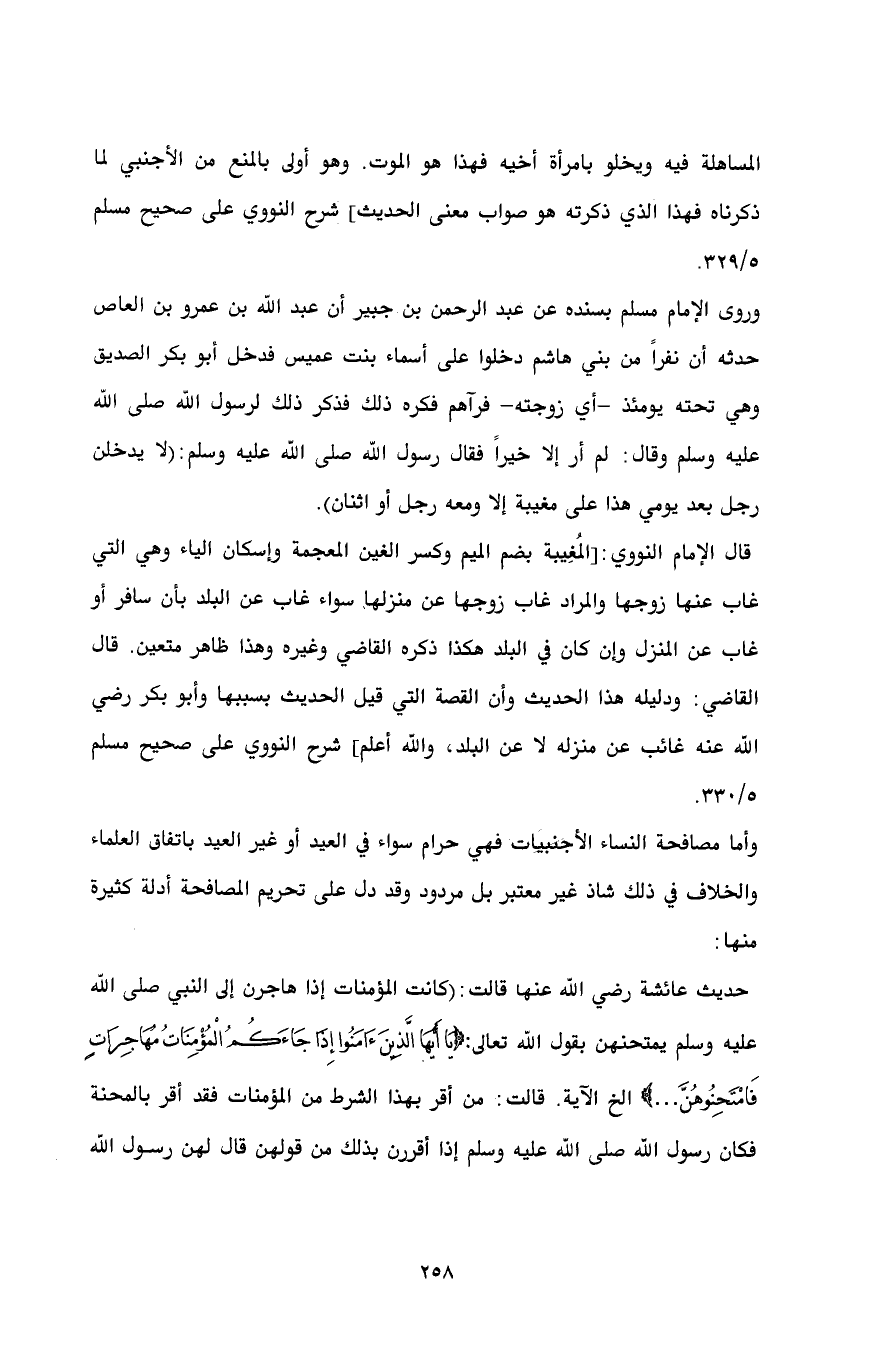 المساهلة فيه ويخلو بامرأة أخيه فهذا هو الموت. وهو أولى بالمنع من الأجنبي لما
ذكرناه فهذا الذي ذكرته هو صواب معنى الحديث] شرح النووي على صحيح مسلم
٣٢٩/٥.
وروى الإمام مسلم بسنده عن عبد الرحمن بن جبير أن عبد الله بن عمرو بن العاص
حدثه أن نفراً من بني هاشم دخلوا على أسماء بنت عميس فدخل أبو بكر الصديق
وهي تحته يومئذ –أي زوجته– فرآهم فكره ذلك فذكر ذلك لرسول الله صلى الله
عليه وسلم وقال: لم أر إلا خيراً فقال رسول الله صلى الله عليه وسلم:(لا يدخلن
رجل بعد يومي هذا على مغيبة إلا ومعه رجل أو اثنان).
قال الإمام النووي:[المُغِيبة بضم الميم وكسر الغين المعجمة وإسكان الياء وهي التي
غاب عنها زوجها والمراد غاب زوجها عن منزلها سواء غاب عن البلد بأن سافر أو
غاب عن المنزل وإن كان في البلد هكذا ذكره القاضي وغيره وهذا ظاهر متعين. قال
القاضي: ودليله هذا الحديث وأن القصة التي قيل الحديث بسببها وأبو بكر رضي
الله عنه غائب عن منزله لا عن البلد، والله أعلم] شرح النووي على صحيح مسلم
٣٣٠/٥.
وأما مصافحة النساء الأجنبيات فهي حرام سواء في العيد أو غير العيد باتفاق العلماء
والخلاف في ذلك شاذ غير معتبر بل مردود وقد دل على تحريم المصافحة أدلة كثيرة
منها:
حديث عائشة رضي الله عنها قالت:(كانت المؤمنات إذا هاجرن إلى النبي صلى الله
عليه وسلم يمتحنهن بقول الله تعالى:﴿يَا أَيُّهَا الَّذِينَ ءَامَنُوا إِذَا جَاءَكُمُ الْمُؤْمِنَاتُ مُهَاجِرَاتٍ
فَامْتَحِنُوهُنَّ...﴾ الخ الآية. قالت: من أقر بهذا الشرط من المؤمنات فقد أقر بالمحنة
فكان رسول الله صلى الله عليه وسلم إذا أقررن بذلك من قولهن قال لهن رسول الله
٢٥٨